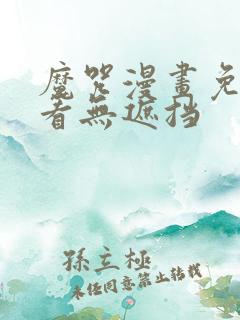 魔咒漫畫免
看無遮挡
孫立極
未经同意禁止转载